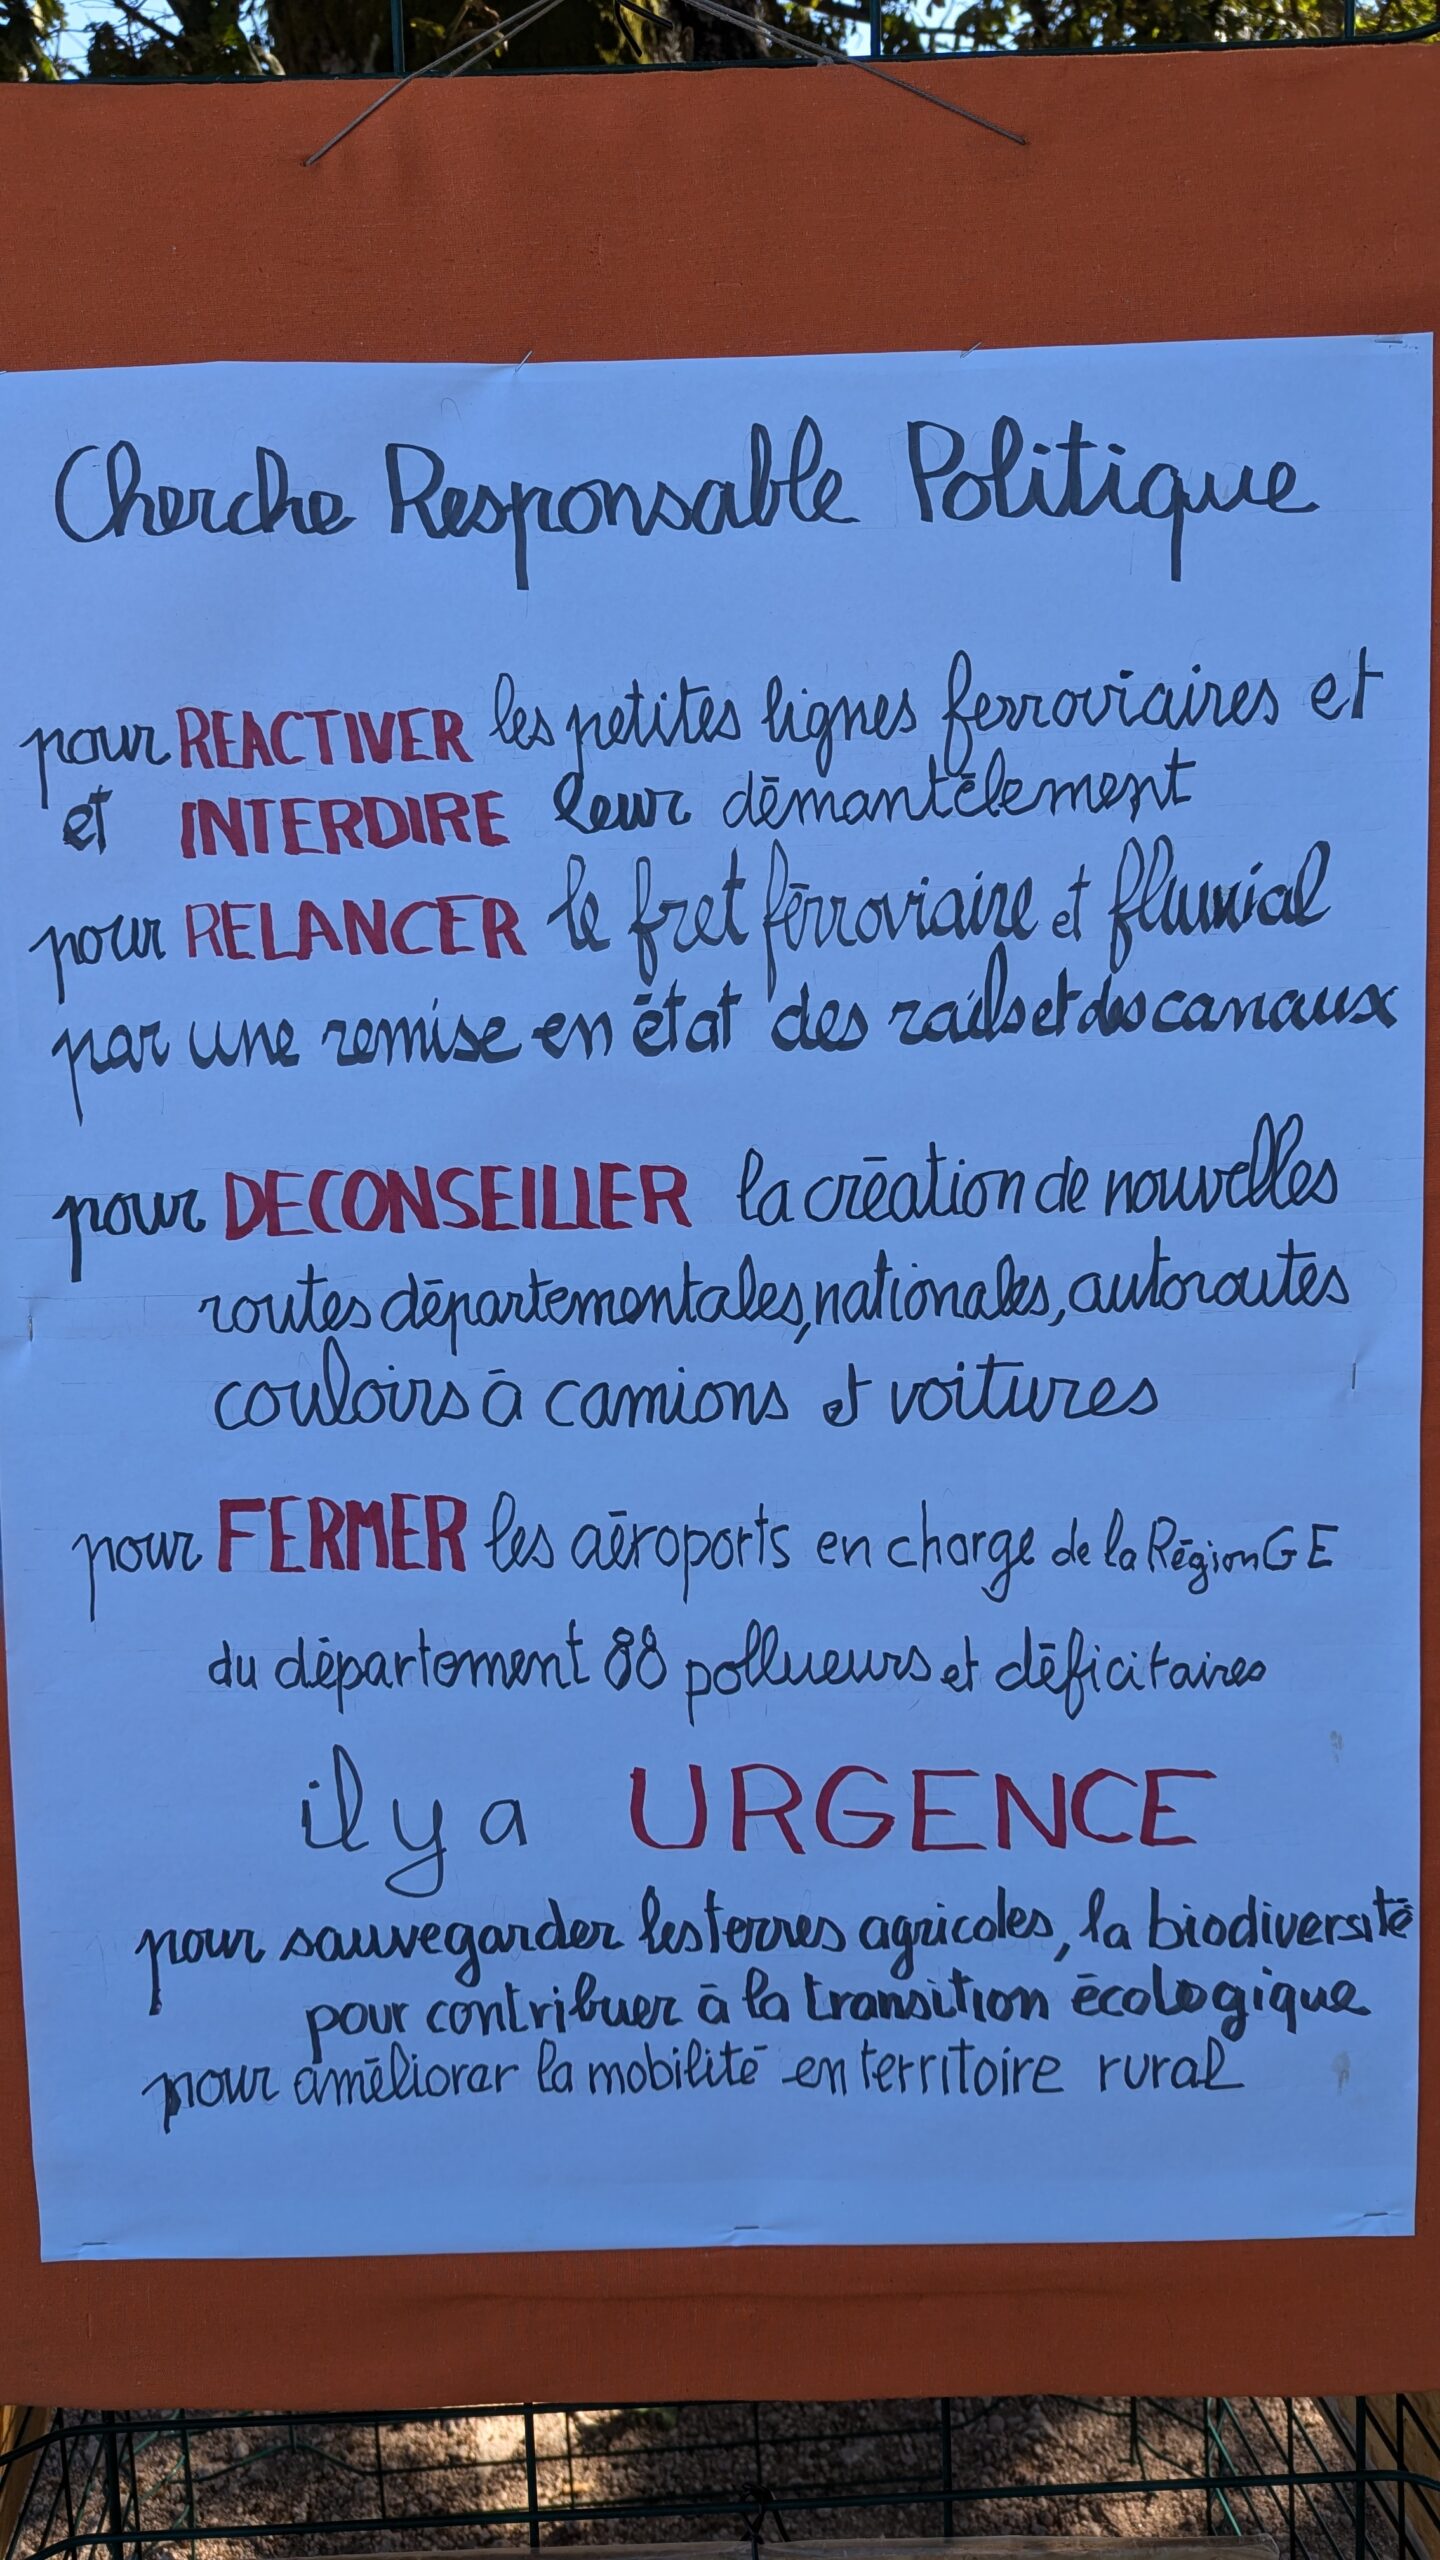 Cherche Responsable Politique
pour REACTIVER les petites lignes ferroviaires et
et INTERDIRE leur démantèlement
pour RELANCER le fret ferroviaire et fluvial
par une remise en état des rails et des canaux
pour DECONSEILLER la création de nouvelles
routes départementales, nationales, autoroutes
couloirs à camions et voitures
pour FERMER les aéroports en charge de la Région GE
du département 88 pollueurs et déficitaires
il y a URGENCE
pour sauvegarder les terres agricoles, la biodiversité
pour contribuer à la transition écologique
pour améliorer la mobilité en territoire rural